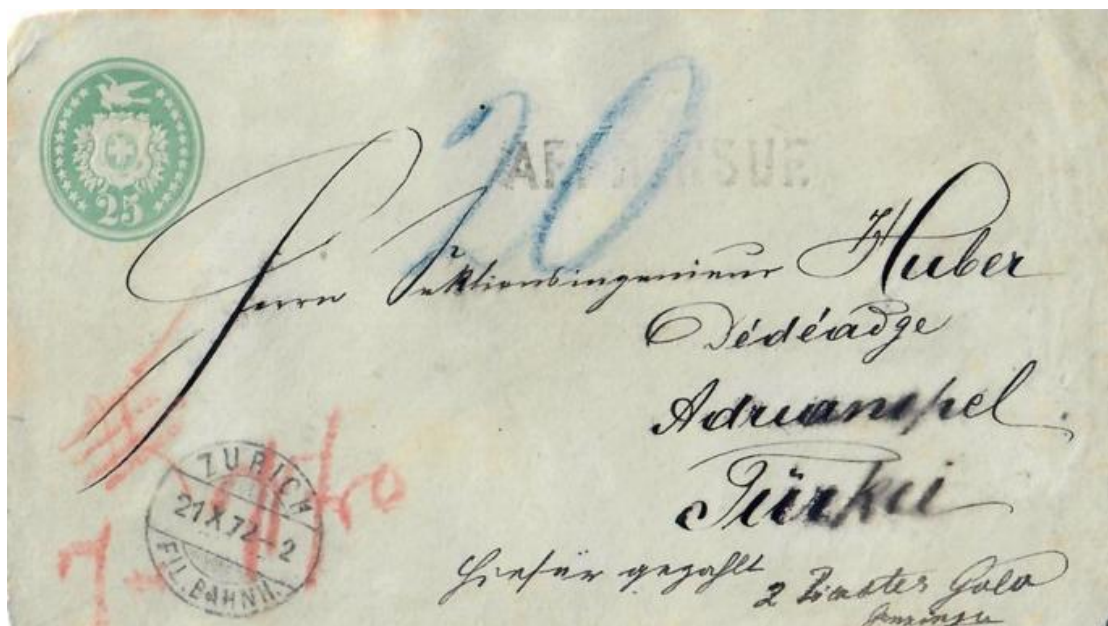 25
20
AFFR SUR
Herrn Sektionsingenieur Huber
Dédéadge
Adrianopel
Türkei
ZÜRICH
21 X 72 – 2
FIL. BAHNH.
7
hiefür gezahlt
2 Gold